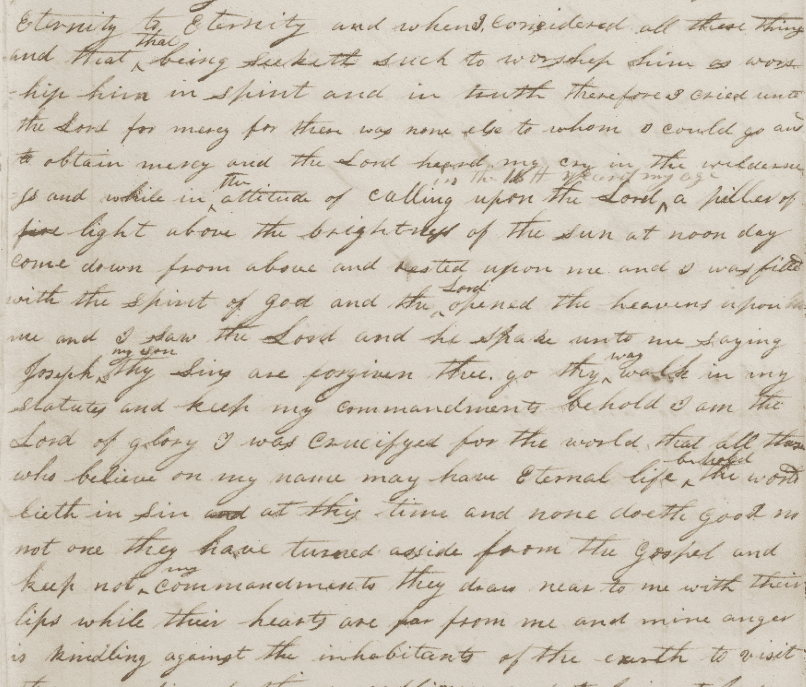 Eternity to Eternity and when I considered all these things
and that that being seeketh such to worshep him as wors
-hip him in spirit and in truth therefore I cried unto
the Lord for mercy for there was none else to whom I could go and
to obtain mercy and the Lord heard my cry in the wilderne
in the 16th year of my age
ss and while in the attitude of calling upon the Lord a piller of
fire light above the brightness of the sun at noon day
come down from above and rested upon me and I was filled
with the spirit of god and the Lord opened the heavens upon
me and I saw the Lord and he spake unto me saying
Joseph my son thy sins are forgiven thee. go thy way walk in my
statutes and keep my commandments behold I am the
Lord of glory I was crucifyed for the world that all those
who believe on my name may have Eternal life behold the world
lieth in sin and at this time and none doeth good no
not one they have turned asside from the gospel and
keep not my commandments they draw near to me with their
lips while their hearts are far from me and mine anger
is kindling against the inhabitants of the earth to visit